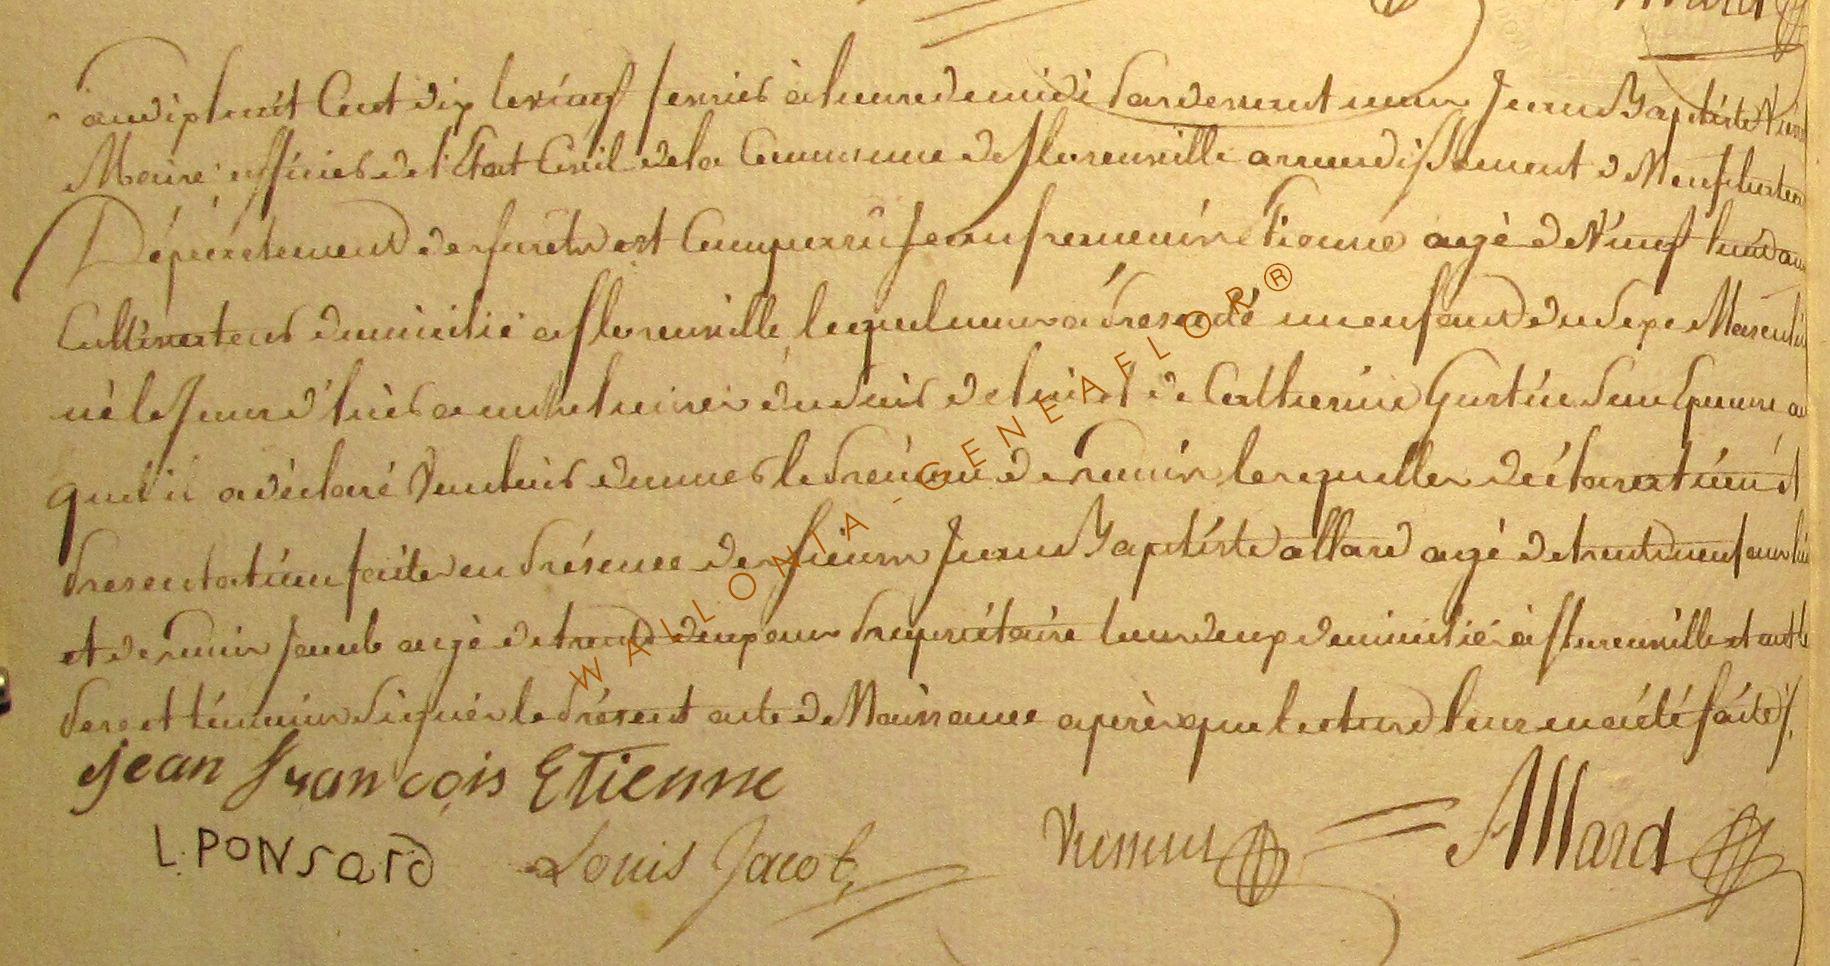 an dix huit Cent dix le vingt fevrier à l'heure de midi Pardevant nous Jean Baptiste
Maire officier de l'Etat Civil de la Commune de florenville arrondissement de Neufchateau
Département des forets est Comparu Jean francois Etienne agé de vingt huit ans
Cultivateur domicilié a florenville lequel nous a présenté un enfant du sexe Masculin
né le Jour d'hier a onze heures du soir de lui et de Catherine Gustin son Epouse
qu'il a déclaré vouloir donner le prénom de Louis lesquelles déclaration et
presentation faites en présence des sieurs Jean Baptiste allard agé de trente neuf ans
et de Louis Jacob agé de trente deux ans propriétaire tous deux domicilié à florenville et ont le
pere et témoins signés le présent acte de Naissance après que lecture leur en a été faite
Jean François Etienne
L. PONSARD Louis Jacob Allard
WALLONIA-GENEAFLOR®